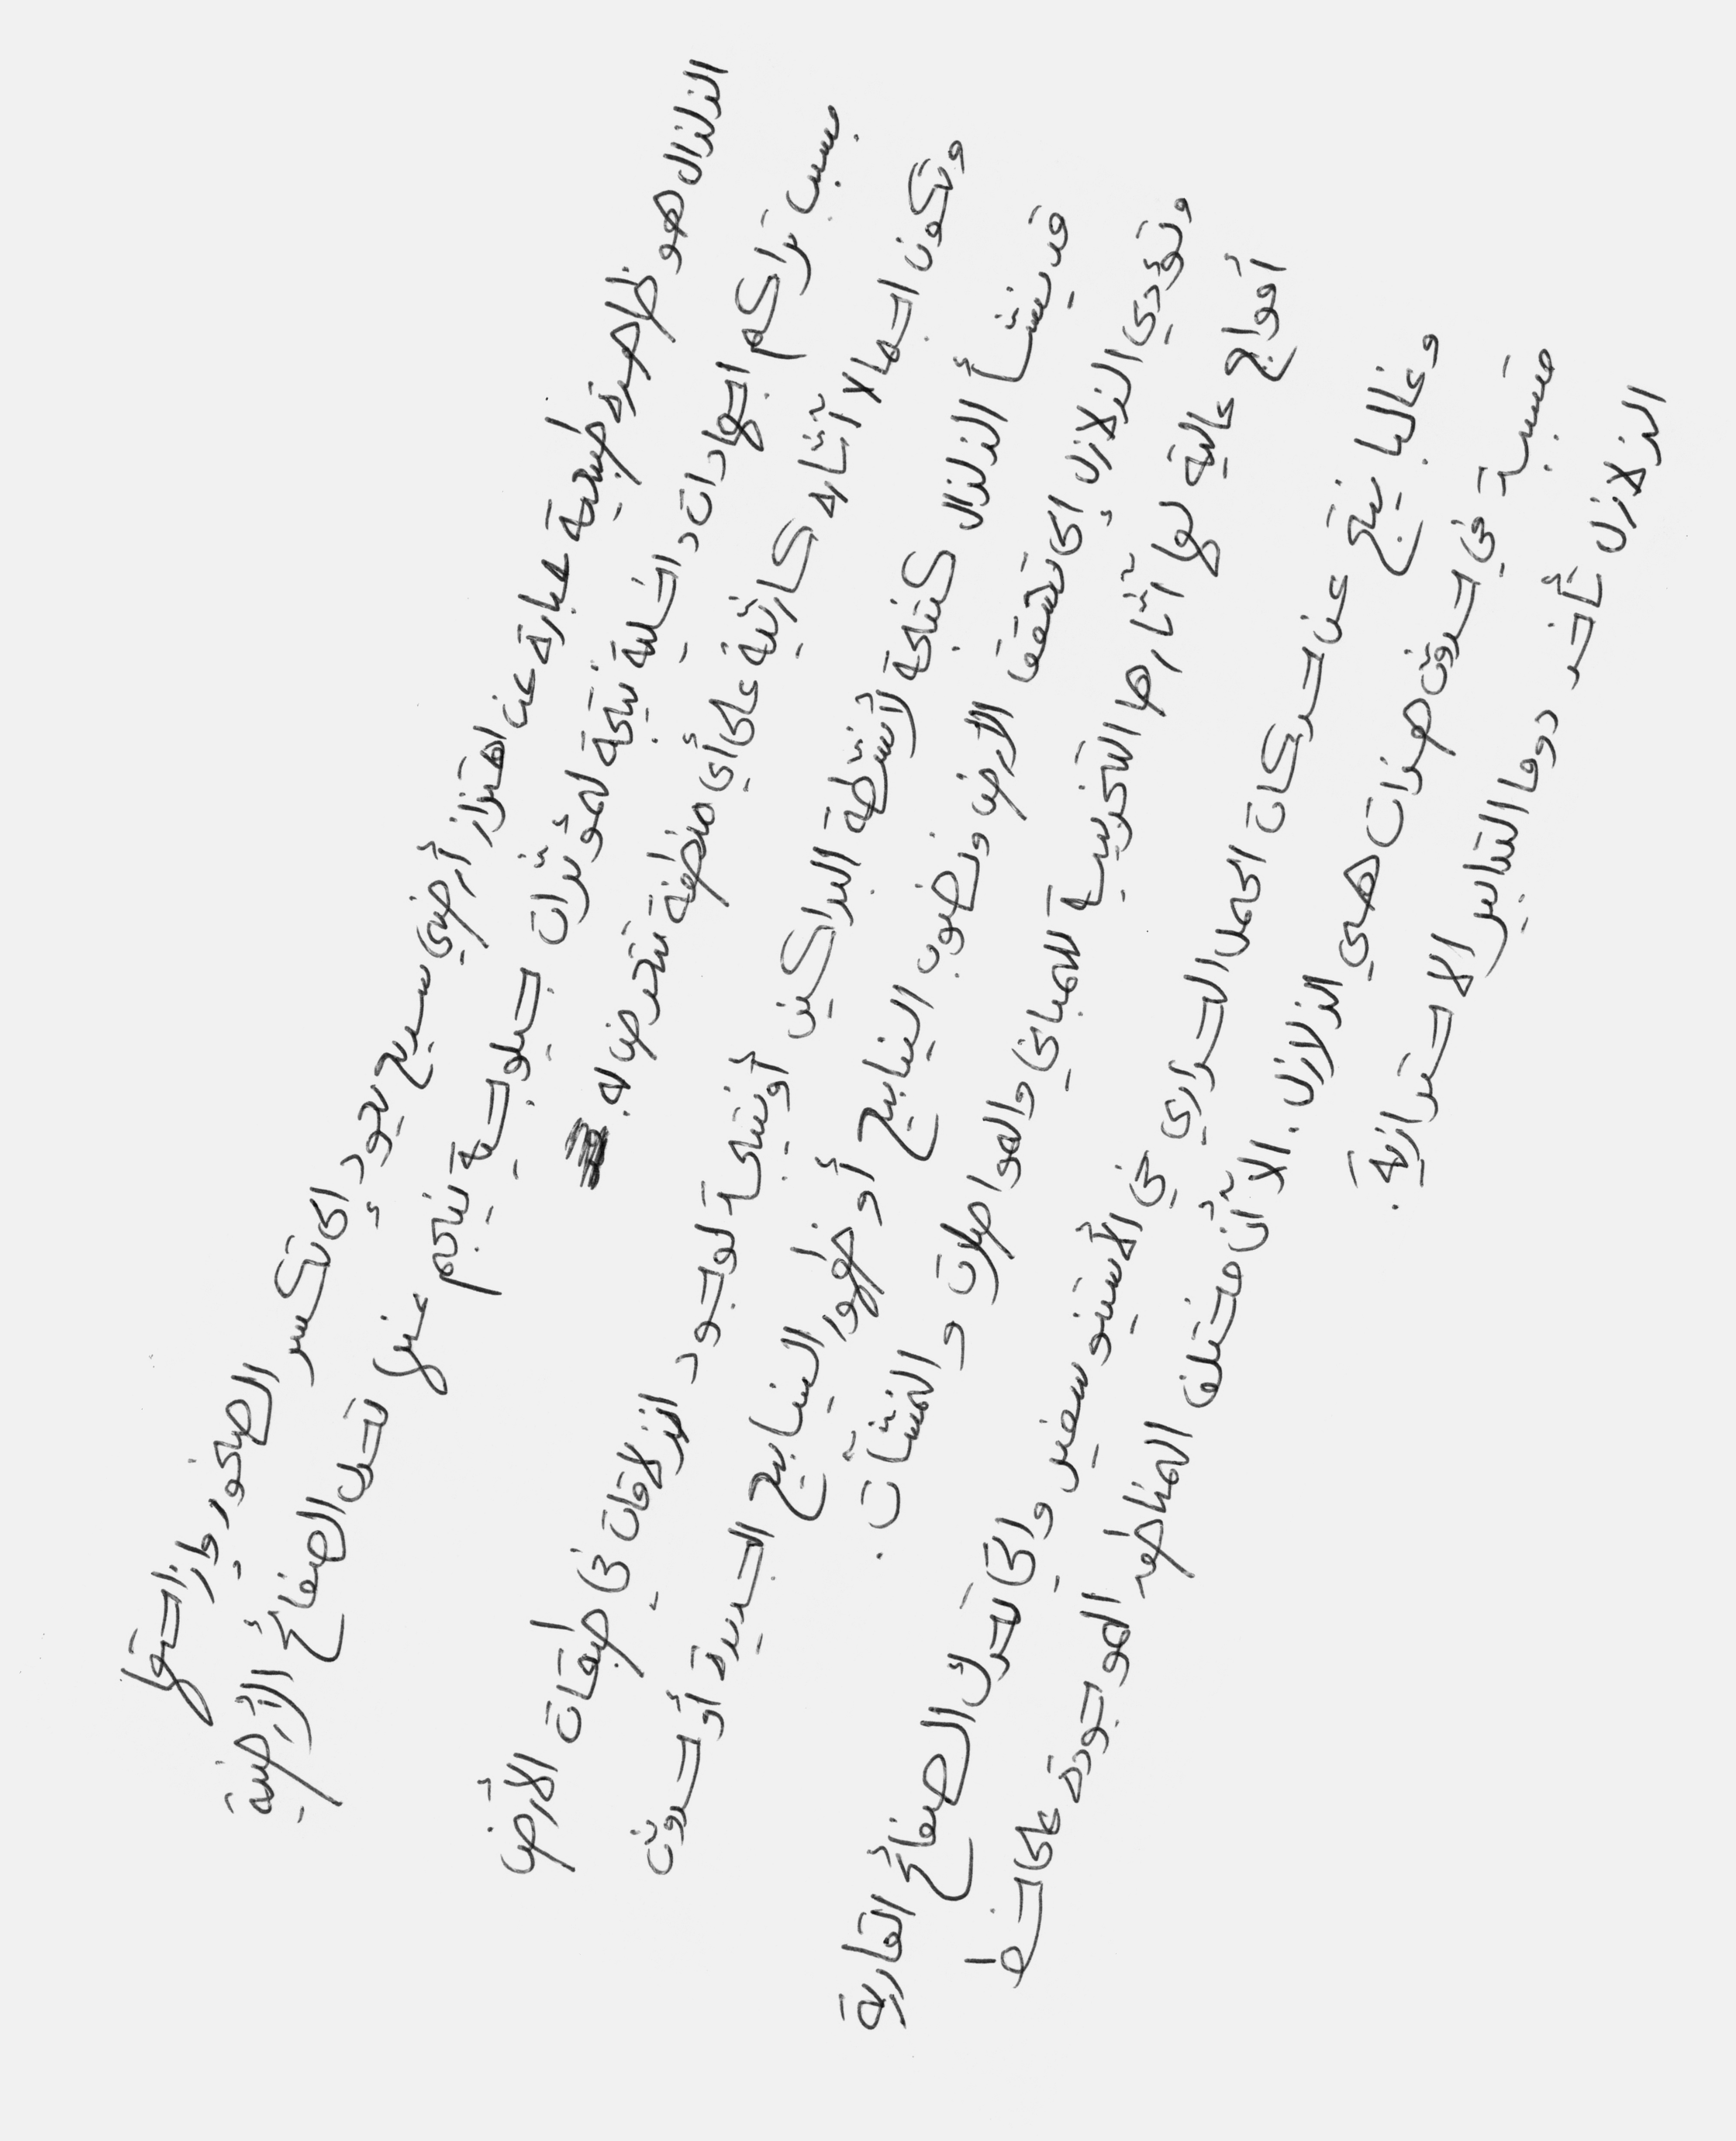 الزلزال هو ظاهرة طبيعية عبارة عن اهتزاز أرضي سريع يعود إلى تكسر الصخور وإزاحتها
بسبب تراكم اجهادات داخلية نتيجة لمؤثرات جيلوجية ينجم عنها تحرك الصفائح الأرضية
وتكون اجمالا آثاره كارثية على أي منطقة تتعرض له.
قد ينشأ الزلزال كنتيجة لأنشطة البراكين أو نتيجة لوجود انزلاقات في طبقات الأرض
وتؤدي الزلازل إلى تشقق الأرض ونضوب الينابيع أو ظهور الينابيع الجديدة أو حدوث
أمواج عالية لها آثارها التخريبية للمباني والمواصلات و المنشآت.
وغالبا ينتج عن حركات الحمل الحراري في الأستينوسفير وإلى تحرك الصفائح القارية
متسببة في حدوث هزات هي الزلازل. الا أن مختلف المناطق الموجودة على خط
الزلازل تأخد دوما التدابير الاحترازية.